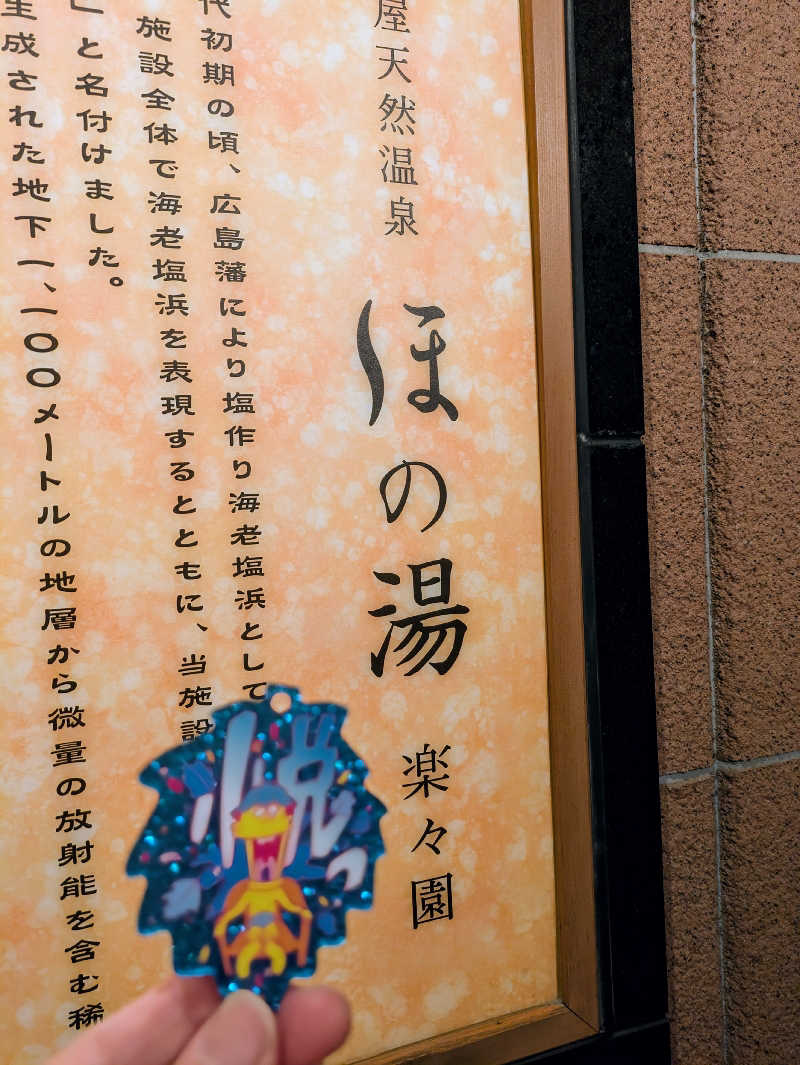 屋天然温泉
ほの湯
楽々園
代初期の頃、広島藩により塩作り海老塩浜として
施設全体で海老塩浜を表現するとともに、当施設
」と名付けました。
生成された地下一、一〇〇メートルの地層から微量の放射能を含む稀
悦っ